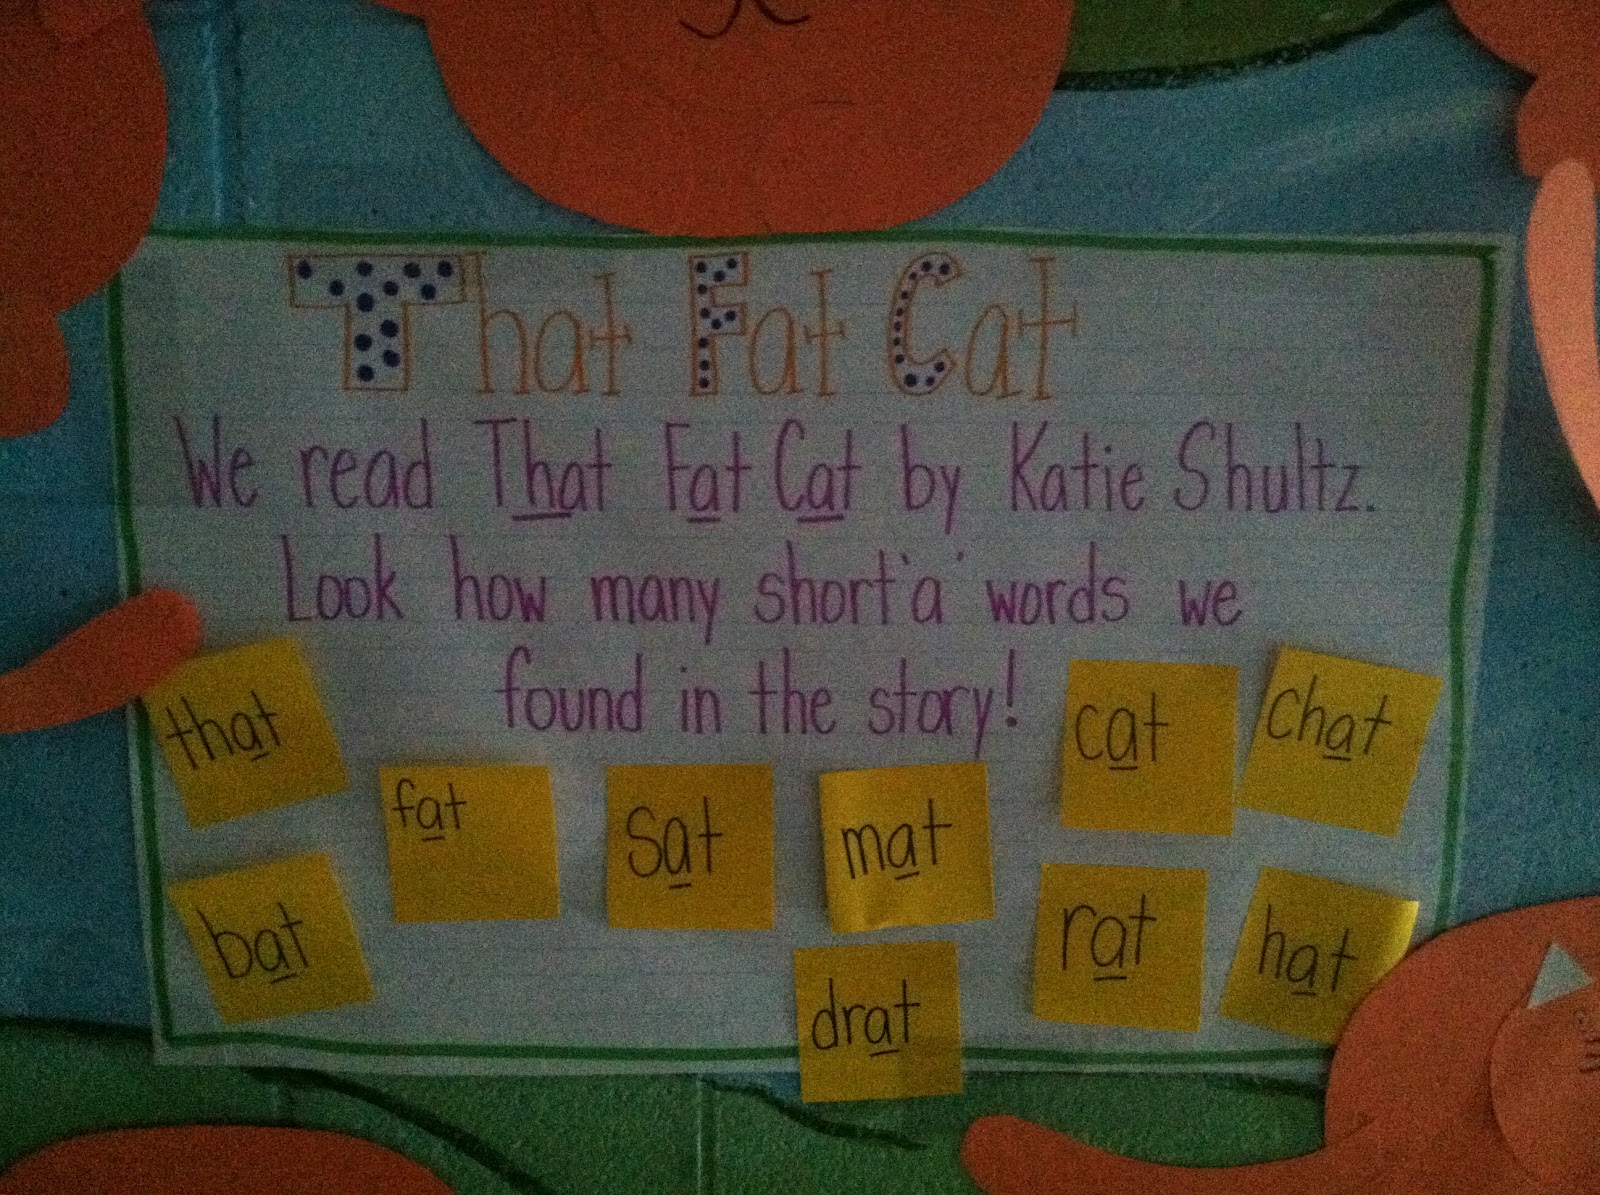 That Fat Cat
We read That Fat Cat by Katie Shultz.
Look how many short 'a' words we
found in the story!
that
fat
sat
mat
cat
chat
bat
drat
rat
hat